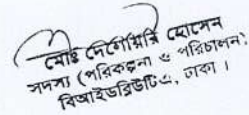 মোঃ দেলোয়ার হোসেন
সদস্য (পরিকল্পনা ও পরিচালন)
বিআইডব্লিউটিএ, ঢাকা ।